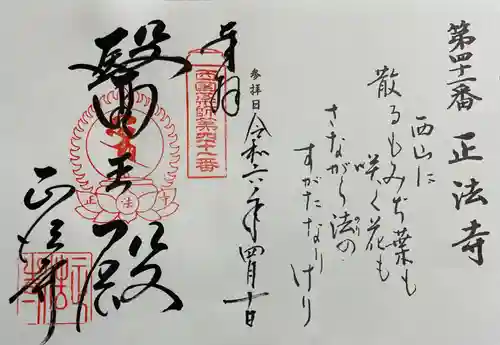 第四十一番 正法寺
西山に
散るもみぢ葉も
咲く花も
さながら法の
(のり)
すがたなりけり
参拝日 令和六年四月十日
奉拝
西国薬師第四十一番
醫王殿
正法寺
正法寺